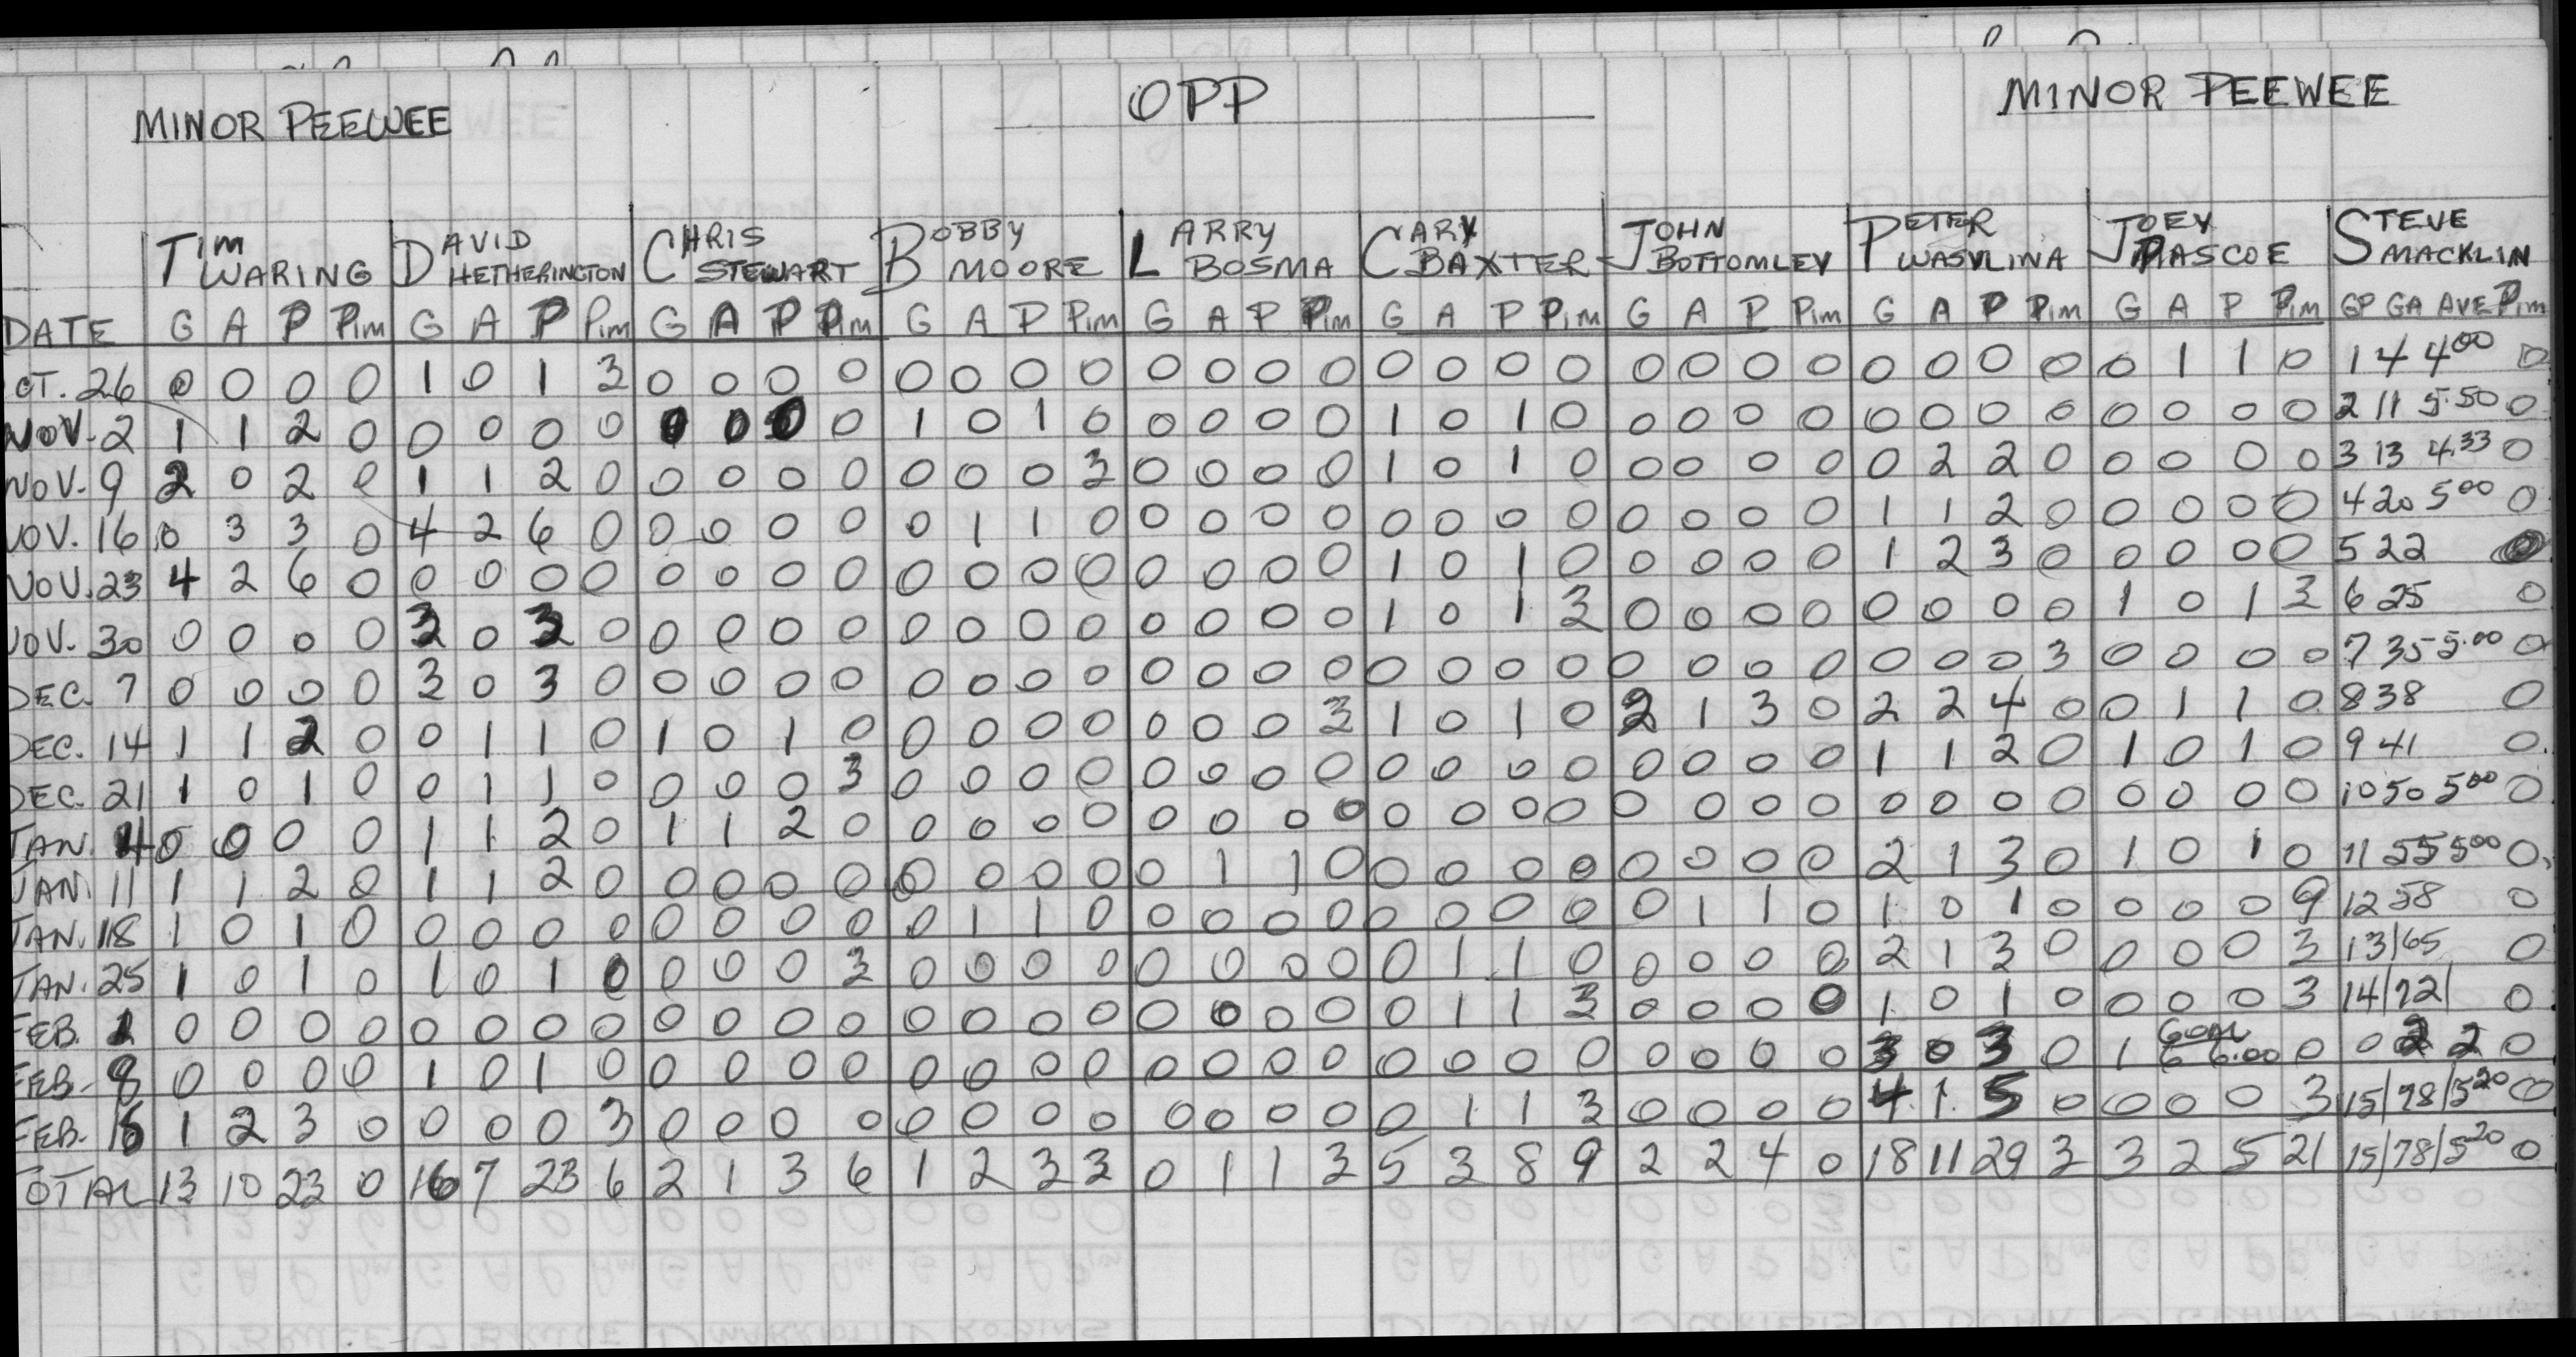 MINOR PEEWEE OPP MINOR PEEWEE
TIM WARING DAVID HETHERINGTON CHRIS STEWART BOBBY MOORE LARRY BOSMA CARY BAXTER JOHN BOTTOMLEY PETER WASYLINA JOEY PASCOE STEVE MACKLIN
DATE G A P Pim G A P Pim G A P Pim G A P Pim G A P Pim G A P Pim G A P Pim G A P Pim G A P Pim GP GA AVE Pim
OCT. 26 0 0 0 0 1 0 1 3 0 0 0 0 0 0 0 0 0 0 0 0 0 0 0 0 0 0 0 0 0 0 0 0 0 1 1 0 1 4 4.00 0
NOV. 2 1 1 2 0 0 0 0 0 0 0 0 0 1 0 1 0 0 0 0 0 1 0 1 0 0 0 0 0 0 0 0 0 0 0 0 0 2 11 5.50 0
NOV. 9 2 0 2 0 1 1 2 0 0 0 0 0 0 0 0 3 0 0 0 0 1 0 1 0 0 0 0 0 0 2 2 0 0 0 0 0 3 13 4.33 0
NOV. 16 0 3 3 0 4 2 6 0 0 0 0 0 0 1 1 0 0 0 0 0 0 0 0 0 0 0 0 0 1 1 2 0 0 0 0 0 4 20 5.00 0
NOV. 23 4 2 6 0 0 0 0 0 0 0 0 0 0 0 0 0 0 0 0 0 1 0 1 0 0 0 0 0 1 2 3 0 0 0 0 0 5 22 0
NOV. 30 0 0 0 0 3 0 3 0 0 0 0 0 0 0 0 0 0 0 0 0 1 0 1 3 0 0 0 0 0 0 0 0 1 0 1 3 6 25 0
DEC. 7 0 0 0 0 3 0 3 0 0 0 0 0 0 0 0 0 0 0 0 0 0 0 0 0 0 0 0 0 0 0 0 3 0 0 0 0 7 35 5.00 0
DEC. 14 1 1 2 0 0 1 1 0 1 0 1 0 0 0 0 0 0 0 0 3 1 0 1 0 2 1 3 0 2 2 4 0 0 1 1 0 8 38 0
DEC. 21 1 0 1 0 0 1 1 0 0 0 0 3 0 0 0 0 0 0 0 0 0 0 0 0 0 0 0 0 1 1 2 0 1 0 1 0 9 41 0
JAN. 4 0 0 0 0 1 1 2 0 1 1 2 0 0 0 0 0 0 0 0 0 0 0 0 0 0 0 0 0 0 0 0 0 0 0 0 0 10 50 5.00 0
JAN. 11 1 1 2 0 1 1 2 0 0 0 0 0 0 0 0 0 0 1 1 0 0 0 0 0 0 0 0 0 2 1 3 0 1 0 1 0 11 55 5.00 0
JAN. 18 1 0 1 0 0 0 0 0 0 0 0 0 0 1 1 0 0 0 0 0 0 0 0 0 0 1 1 0 1 0 1 0 0 0 0 9 12 58 0
JAN. 25 1 0 1 0 1 0 1 0 0 0 0 3 0 0 0 0 0 0 0 0 0 1 1 0 0 0 0 0 2 1 3 0 0 0 0 3 13/65 0
FEB. 1 0 0 0 0 0 0 0 0 0 0 0 0 0 0 0 0 0 0 0 0 0 1 1 3 0 0 0 0 1 0 1 0 0 0 0 3 14/72/ 0
FEB. 8 0 0 0 0 1 0 1 0 0 0 0 0 0 0 0 0 0 0 0 0 0 0 0 0 0 0 0 0 3 0 3 0 1 GOAL 6 6.00 0 0 2 2 0
FEB. 15 1 2 3 0 0 0 0 3 0 0 0 0 0 0 0 0 0 0 0 0 0 1 1 3 0 0 0 0 4 1 5 0 0 0 0 3 15/78/5.20 0
TOTAL 13 10 23 0 16 7 23 6 2 1 3 6 1 2 3 3 0 1 1 3 5 3 8 9 2 2 4 0 18 11 29 3 3 2 5 21 15/78/5.20 0